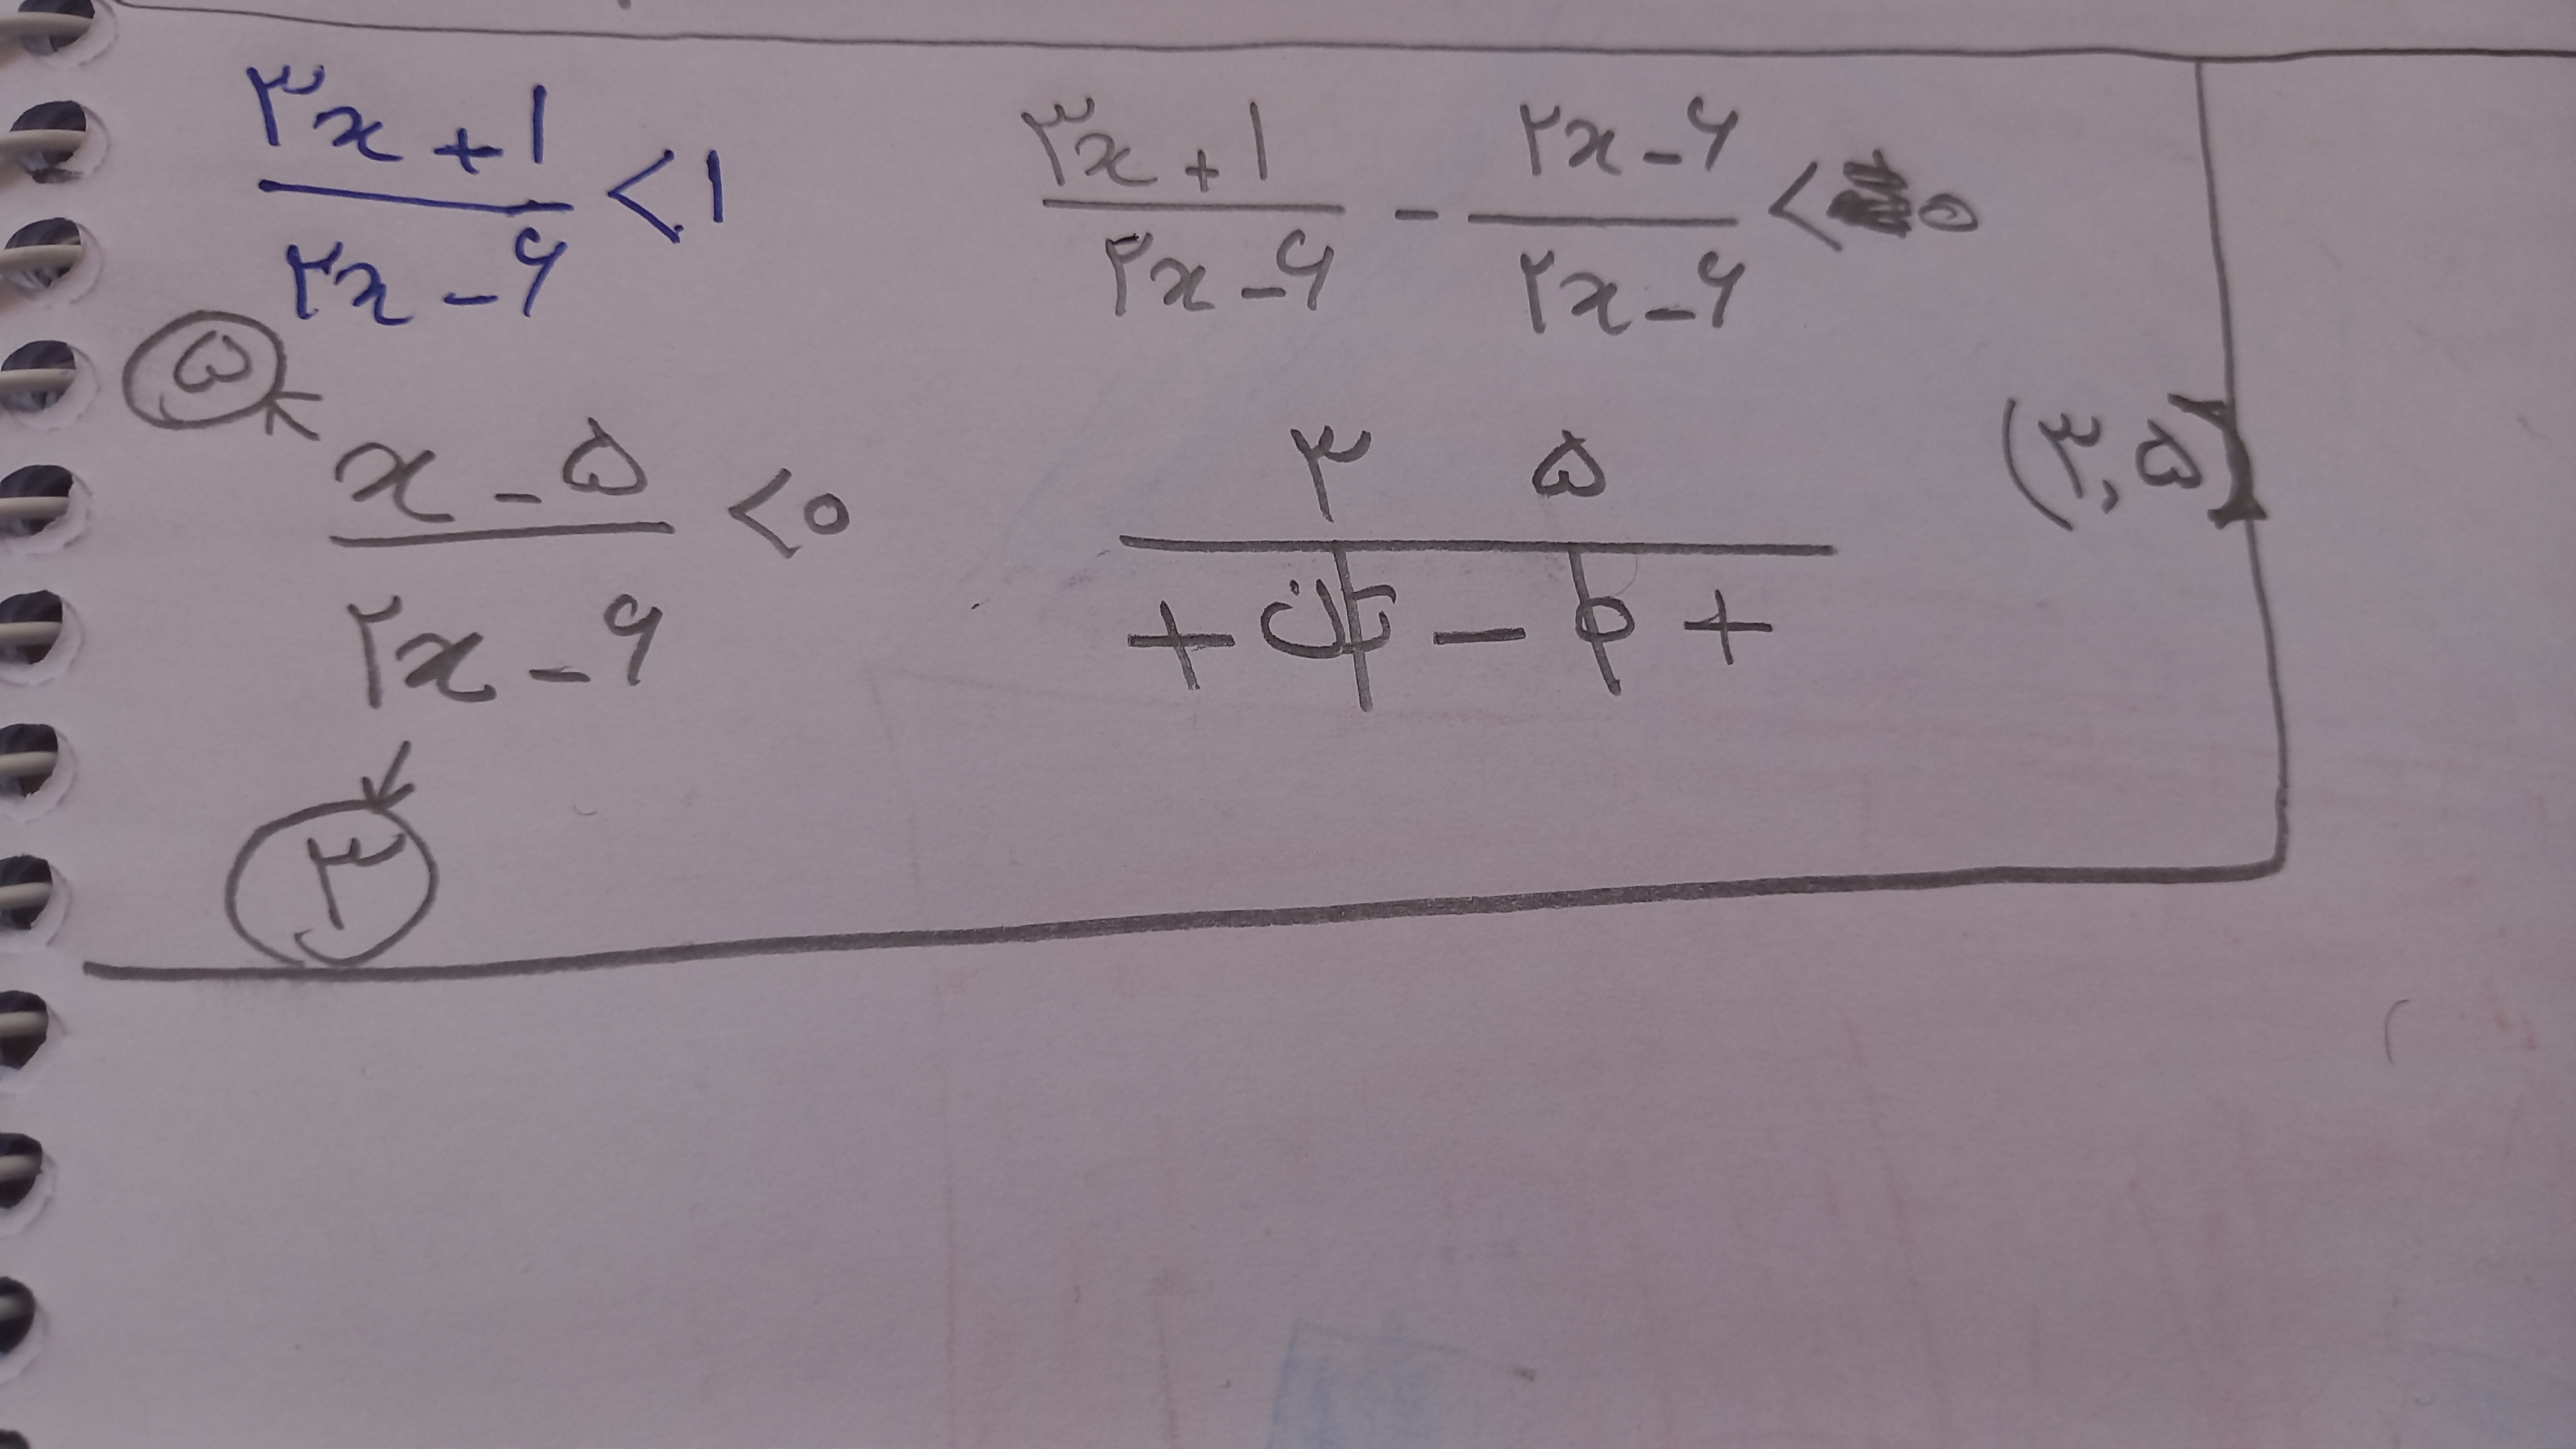 ۳x + ۱ / ۲x - ۶ < ۱
۳x + ۱ / ۲x - ۶ - ۲x - ۶ / ۲x - ۶ < ۰
۵
x - ۵ / ۲x - ۶ < ۰
۳ ۵
+ تن - ۰ +
(۳, ۵)
۳